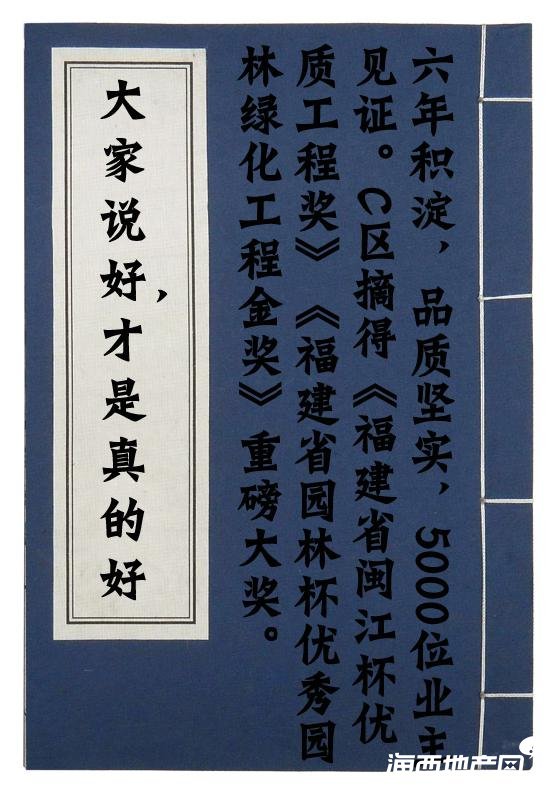 六年积淀，品质坚实，5000位业主
见证。C区摘得《福建省闽江杯优
质工程奖》《福建省园林杯优秀园
林绿化工程金奖》重磅大奖。
大家说好，才是真的好
海西地产网